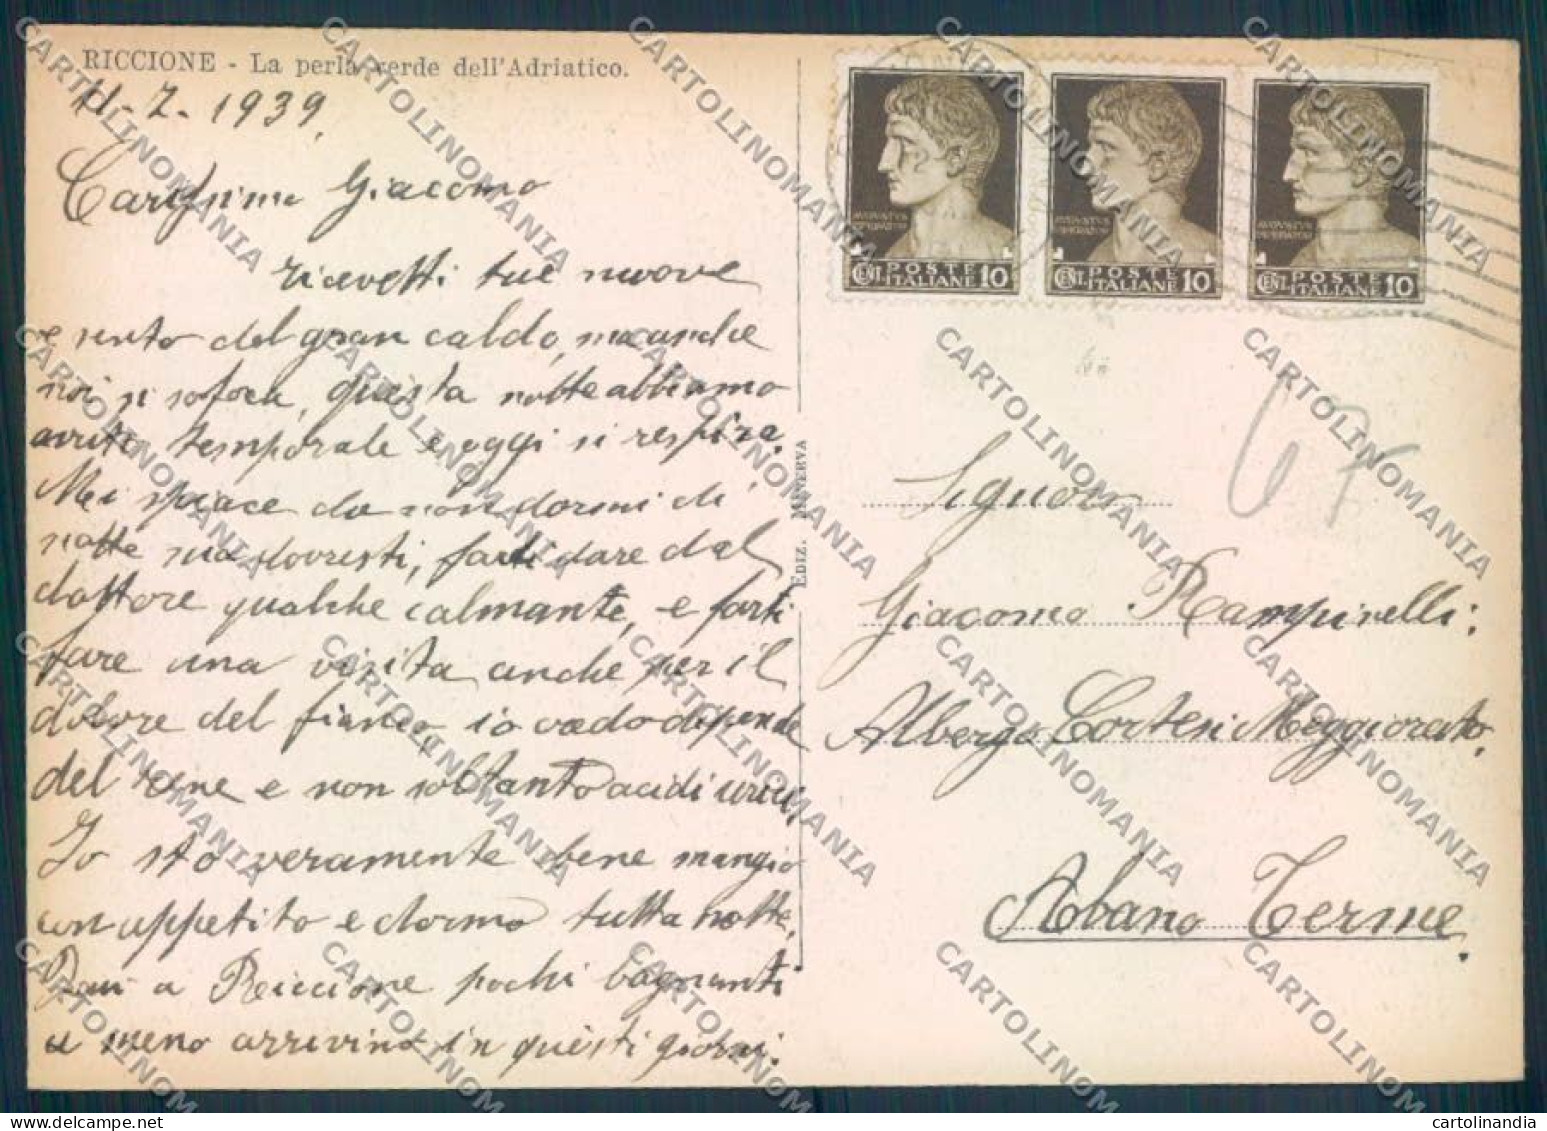 RICCIONE - La perla verde dell'Adriatico.
11-7-1939.
Carissimo Giacomo
ricevetti tue nuove
e sento del gran caldo, ma anche
noi si sofoca, questa notte abbiamo
avuto temporale e oggi si respira.
Mi spiace che non dormi di
notte ma dovresti, farti dare dal
dottore qualche calmante, e farti
fare una visita anche per il
dolore del fianco, io credo dipende
del rene e non soltanto acidi urici,
Io sto veramente bene mangio
con appetito e dormo tutta notte.
a Riccione pochi bagnanti
a meno arrivino in questi giorni.
EDIZ. MINERVA
AVGVSTVS
IMPERATOR
POSTE
CENT. ITALIANE 10
AVGVSTVS
IMPERATOR
POSTE
CENT. ITALIANE 10
AVGVSTVS
IMPERATOR
POSTE
CENT. ITALIANE 10
67
Signor
Giacomo Rampinelli.
Albergo Cortesi Meggiorato.
Abano Terme.
CARTOLINOMANIA
cartolinandia